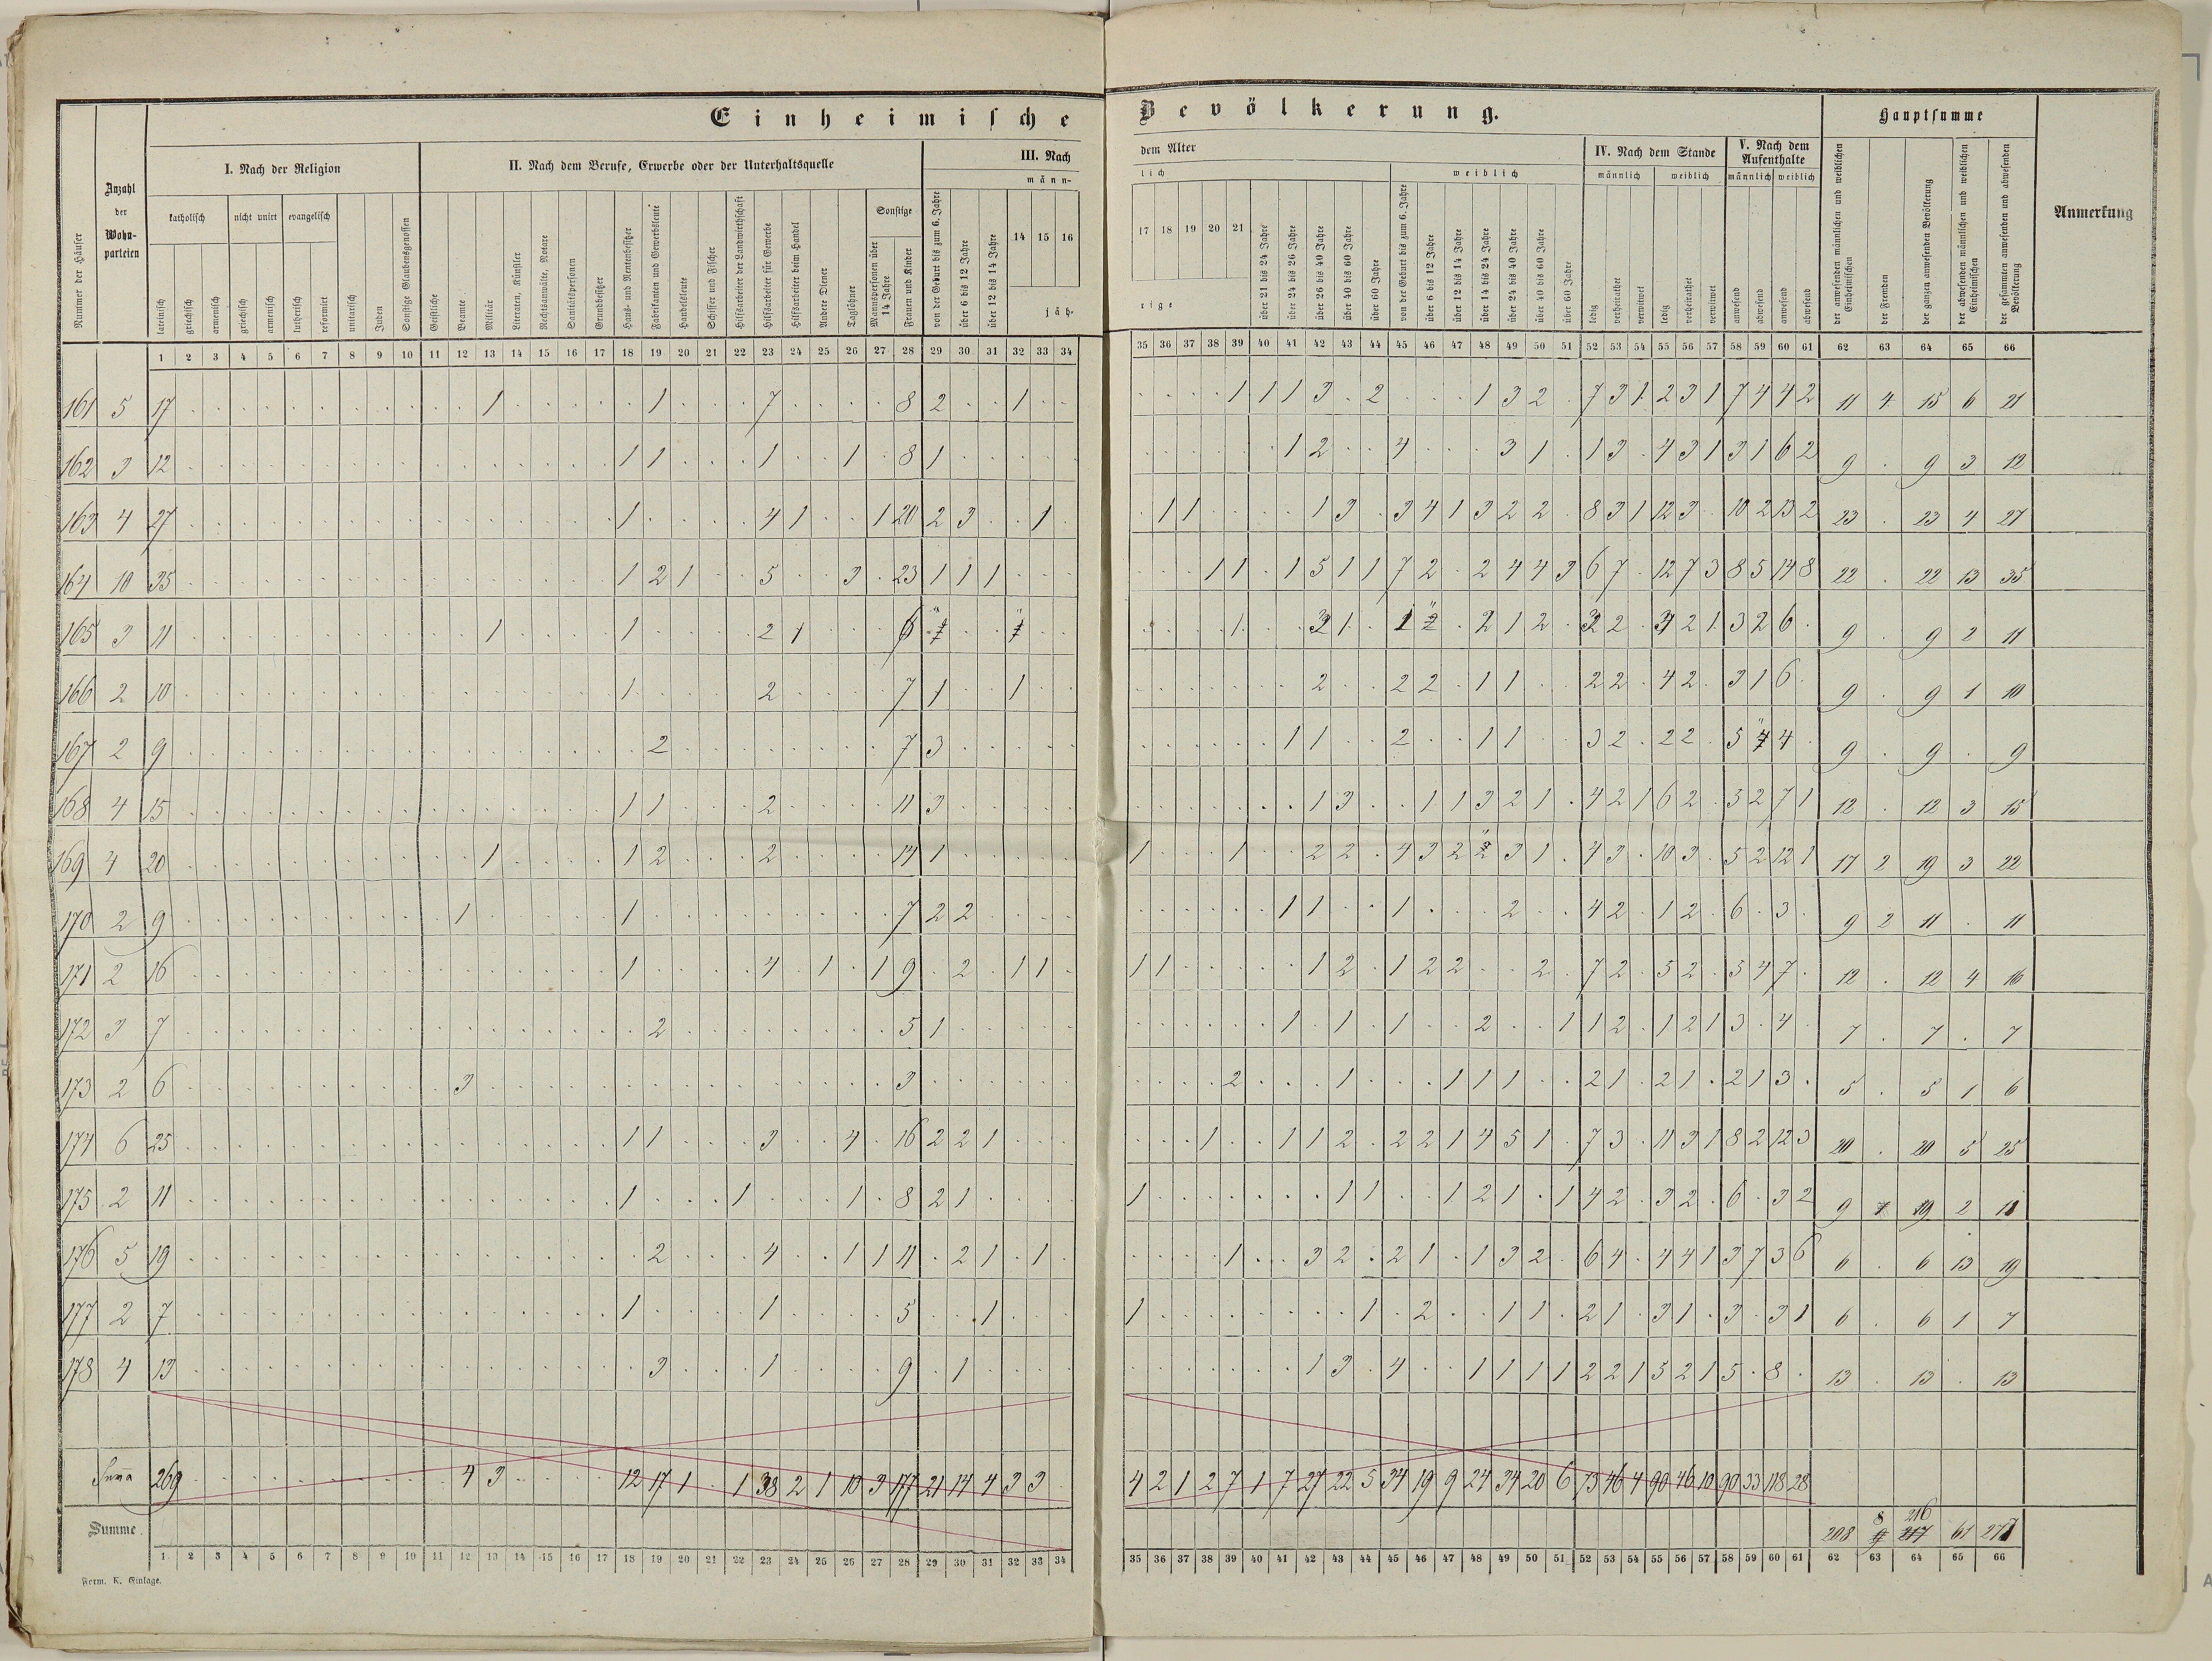 Einheimische Bevölkerung.
Nummer der Häuser
Anzahl der Wohnparteien
I. Nach der Religion
II. Nach dem Berufe, Erwerbe oder der Unterhaltsquelle
III. Nach dem Alter
IV. Nach dem Stande
V. Nach dem Aufenthalte
Hauptsumme
Anmerkung
katholisch
nicht unirt
evangelisch
lateinisch
griechisch
armenisch
griechisch
armenisch
lutherisch
reformirt
unitarisch
Juden
Sonstige Glaubensgenossen
Geistliche
Beamte
Militär
Literaten, Künstler
Rechtsanwälte, Notare
Sanitätspersonen
Grundbesitzer
Haus- und Rentenbesitzer
Fabrikanten und Gewerbsleute
Handelsleute
Schiffer und Fischer
Hilfsarbeiter der Landwirthschaft
Hilfsarbeiter für Gewerbe
Hilfsarbeiter beim Handel
Andere Diener
Taglöhner
Sonstige
Mannspersonen über 14 Jahre
Frauen und Kinder
männlich
von der Geburt bis zum 6. Jahre
über 6 bis 12 Jahre
über 12 bis 14 Jahre
14 15 16 17 18 19 20 21
jährige
über 21 bis 24 Jahre
über 24 bis 26 Jahre
über 26 bis 40 Jahre
über 40 bis 60 Jahre
über 60 Jahre
weiblich
von der Geburt bis zum 6. Jahre
über 6 bis 12 Jahre
über 12 bis 14 Jahre
über 14 bis 24 Jahre
über 24 bis 40 Jahre
über 40 bis 60 Jahre
über 60 Jahre
männlich weiblich
ledig
verheirathet
verwitwet
ledig
verheirathet
verwitwet
männlich weiblich
anwesend
abwesend
anwesend
abwesend
der anwesenden männlichen und weiblichen Einheimischen
der Fremden
der ganzen anwesenden Bevölkerung
der abwesenden männlichen und weiblichen Einheimischen
der gesammten anwesenden und abwesenden Bevölkerung
1 2 3 4 5 6 7 8 9 10 11 12 13 14 15 16 17 18 19 20 21 22 23 24 25 26 27 28 29 30 31 32 33 34 35 36 37 38 39 40 41 42 43 44 45 46 47 48 49 50 51 52 53 54 55 56 57 58 59 60 61 62 63 64 65 66
161 5 17 1 1 7 8 2 1 1 1 1 3 2 1 3 2 7 3 1 2 3 1 7 4 4 2 11 4 15 6 21
162 3 12 1 1 1 1 8 1 1 2 4 3 1 1 3 4 3 1 3 1 6 2 9 9 3 12
163 4 27 1 4 1 1 20 2 3 1 1 1 1 3 3 4 1 3 2 2 8 3 1 12 3 10 2 13 2 23 23 4 27
164 10 35 1 2 1 5 3 23 1 1 1 1 1 1 5 1 1 7 2 2 4 4 3 6 7 12 7 3 8 5 14 8 22 22 13 35
165 3 11 1 1 2 1 6 1 1 2 1 2 2 2 2 1 3 2 6 9 9 2 11
166 2 10 1 2 7 1 1 2 2 2 1 1 2 2 4 2 3 1 6 9 9 1 10
167 2 9 2 7 3 1 1 2 1 1 3 2 2 2 5 4 9 9 9
168 4 15 1 1 2 11 3 1 3 1 1 3 2 1 4 2 1 6 2 5 2 7 1 12 12 3 15
169 4 20 1 1 2 2 14 1 1 1 2 2 4 3 2 3 1 4 3 10 3 5 2 12 1 17 2 19 3 22
170 2 9 1 1 7 2 2 1 1 1 2 4 2 1 2 6 3 9 2 11 11
171 2 16 1 4 1 1 9 2 1 1 1 1 1 2 1 2 2 2 7 2 5 2 5 4 7 12 12 4 16
172 3 7 2 5 1 1 1 1 2 1 1 2 1 2 1 3 4 7 7 7
173 2 6 3 3 2 1 1 1 1 2 1 2 1 2 1 3 5 5 1 6
174 6 25 1 1 3 4 16 2 2 1 1 1 1 2 2 2 1 4 5 1 7 3 11 3 1 8 2 12 3 20 20 5 25
175 2 11 1 1 1 8 2 1 1 1 1 1 2 1 1 4 2 3 2 6 3 2 9 9 2 11
176 5 19 2 4 1 1 11 2 1 1 1 3 2 2 1 1 3 2 6 4 4 4 1 3 7 3 6 6 6 13 19
177 2 7 1 1 5 1 1 1 2 1 1 2 1 3 1 3 3 1 6 6 1 7
178 4 13 3 1 9 1 1 3 4 1 1 1 1 2 2 1 5 2 1 5 8 13 13 13
Suma 269 4 3 12 17 1 1 38 2 1 10 3 177 21 14 4 3 3 4 2 1 2 7 1 7 27 22 5 34 19 9 24 34 20 6 73 46 4 90 46 10 90 33 118 28
8 216
Summe 208 9 217 61 277
1 2 3 4 5 6 7 8 9 10 11 12 13 14 15 16 17 18 19 20 21 22 23 24 25 26 27 28 29 30 31 32 33 34 35 36 37 38 39 40 41 42 43 44 45 46 47 48 49 50 51 52 53 54 55 56 57 58 59 60 61 62 63 64 65 66
Form. K. Einlage.